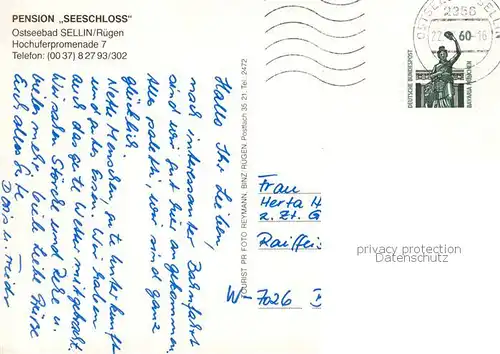 PENSION „SEESCHLOSS"
Ostseebad SELLIN/Rügen
Hochuferpromenade 7
Telefon: (00 37) 8 27 93/302
OSTSEEBAD SELLIN
2356
22
60-16
DEUTSCHE BUNDESPOST
BAVARIA MÜNCHEN
Hallo Ihr Lieben,
nach interessanter Bahnfahrt
sind wir gut hier angekommen.
Alles paletti, wir sind ganz
glücklich.
Nette Menschen, gute Unterkunft
und gutes Essen. Wir haben
auch das gute Wetter mitgebracht.
Wir sahen Störche und Rehe u.
vieles mehr. Viele liebe Grüsse
Euch alles Gute
Doris u.
TOURIST PR FOTO REYMANN, BINZ RÜGEN, Postfach 35 21 Tel. 2472
Frau
Herta H
z. Zt. G
Raiffei
W- 7026
privacy protection
Datenschutz